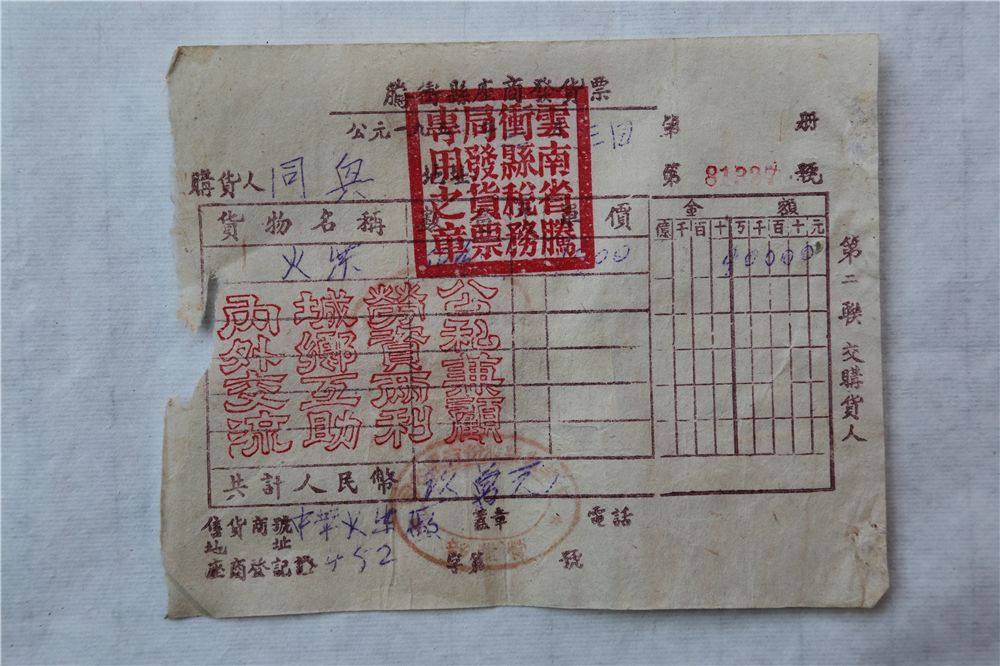 騰衝縣座商發貨票
公元一九 三日 第 册
購貨人 同興 地址 第 號
雲南省騰
衝縣稅務
局發貨票
專用之章
貨物名稱 數量 單價 金額
億千百十万千百十元
火柴 90000
公私兼顧
勞資兩利
城鄉互助
内外交流
共計人民幣 玖萬元
第二联交購貨人
售貨商號 中華火柴廠 蓋章 電話
地址
座商登記證 452 字第 號